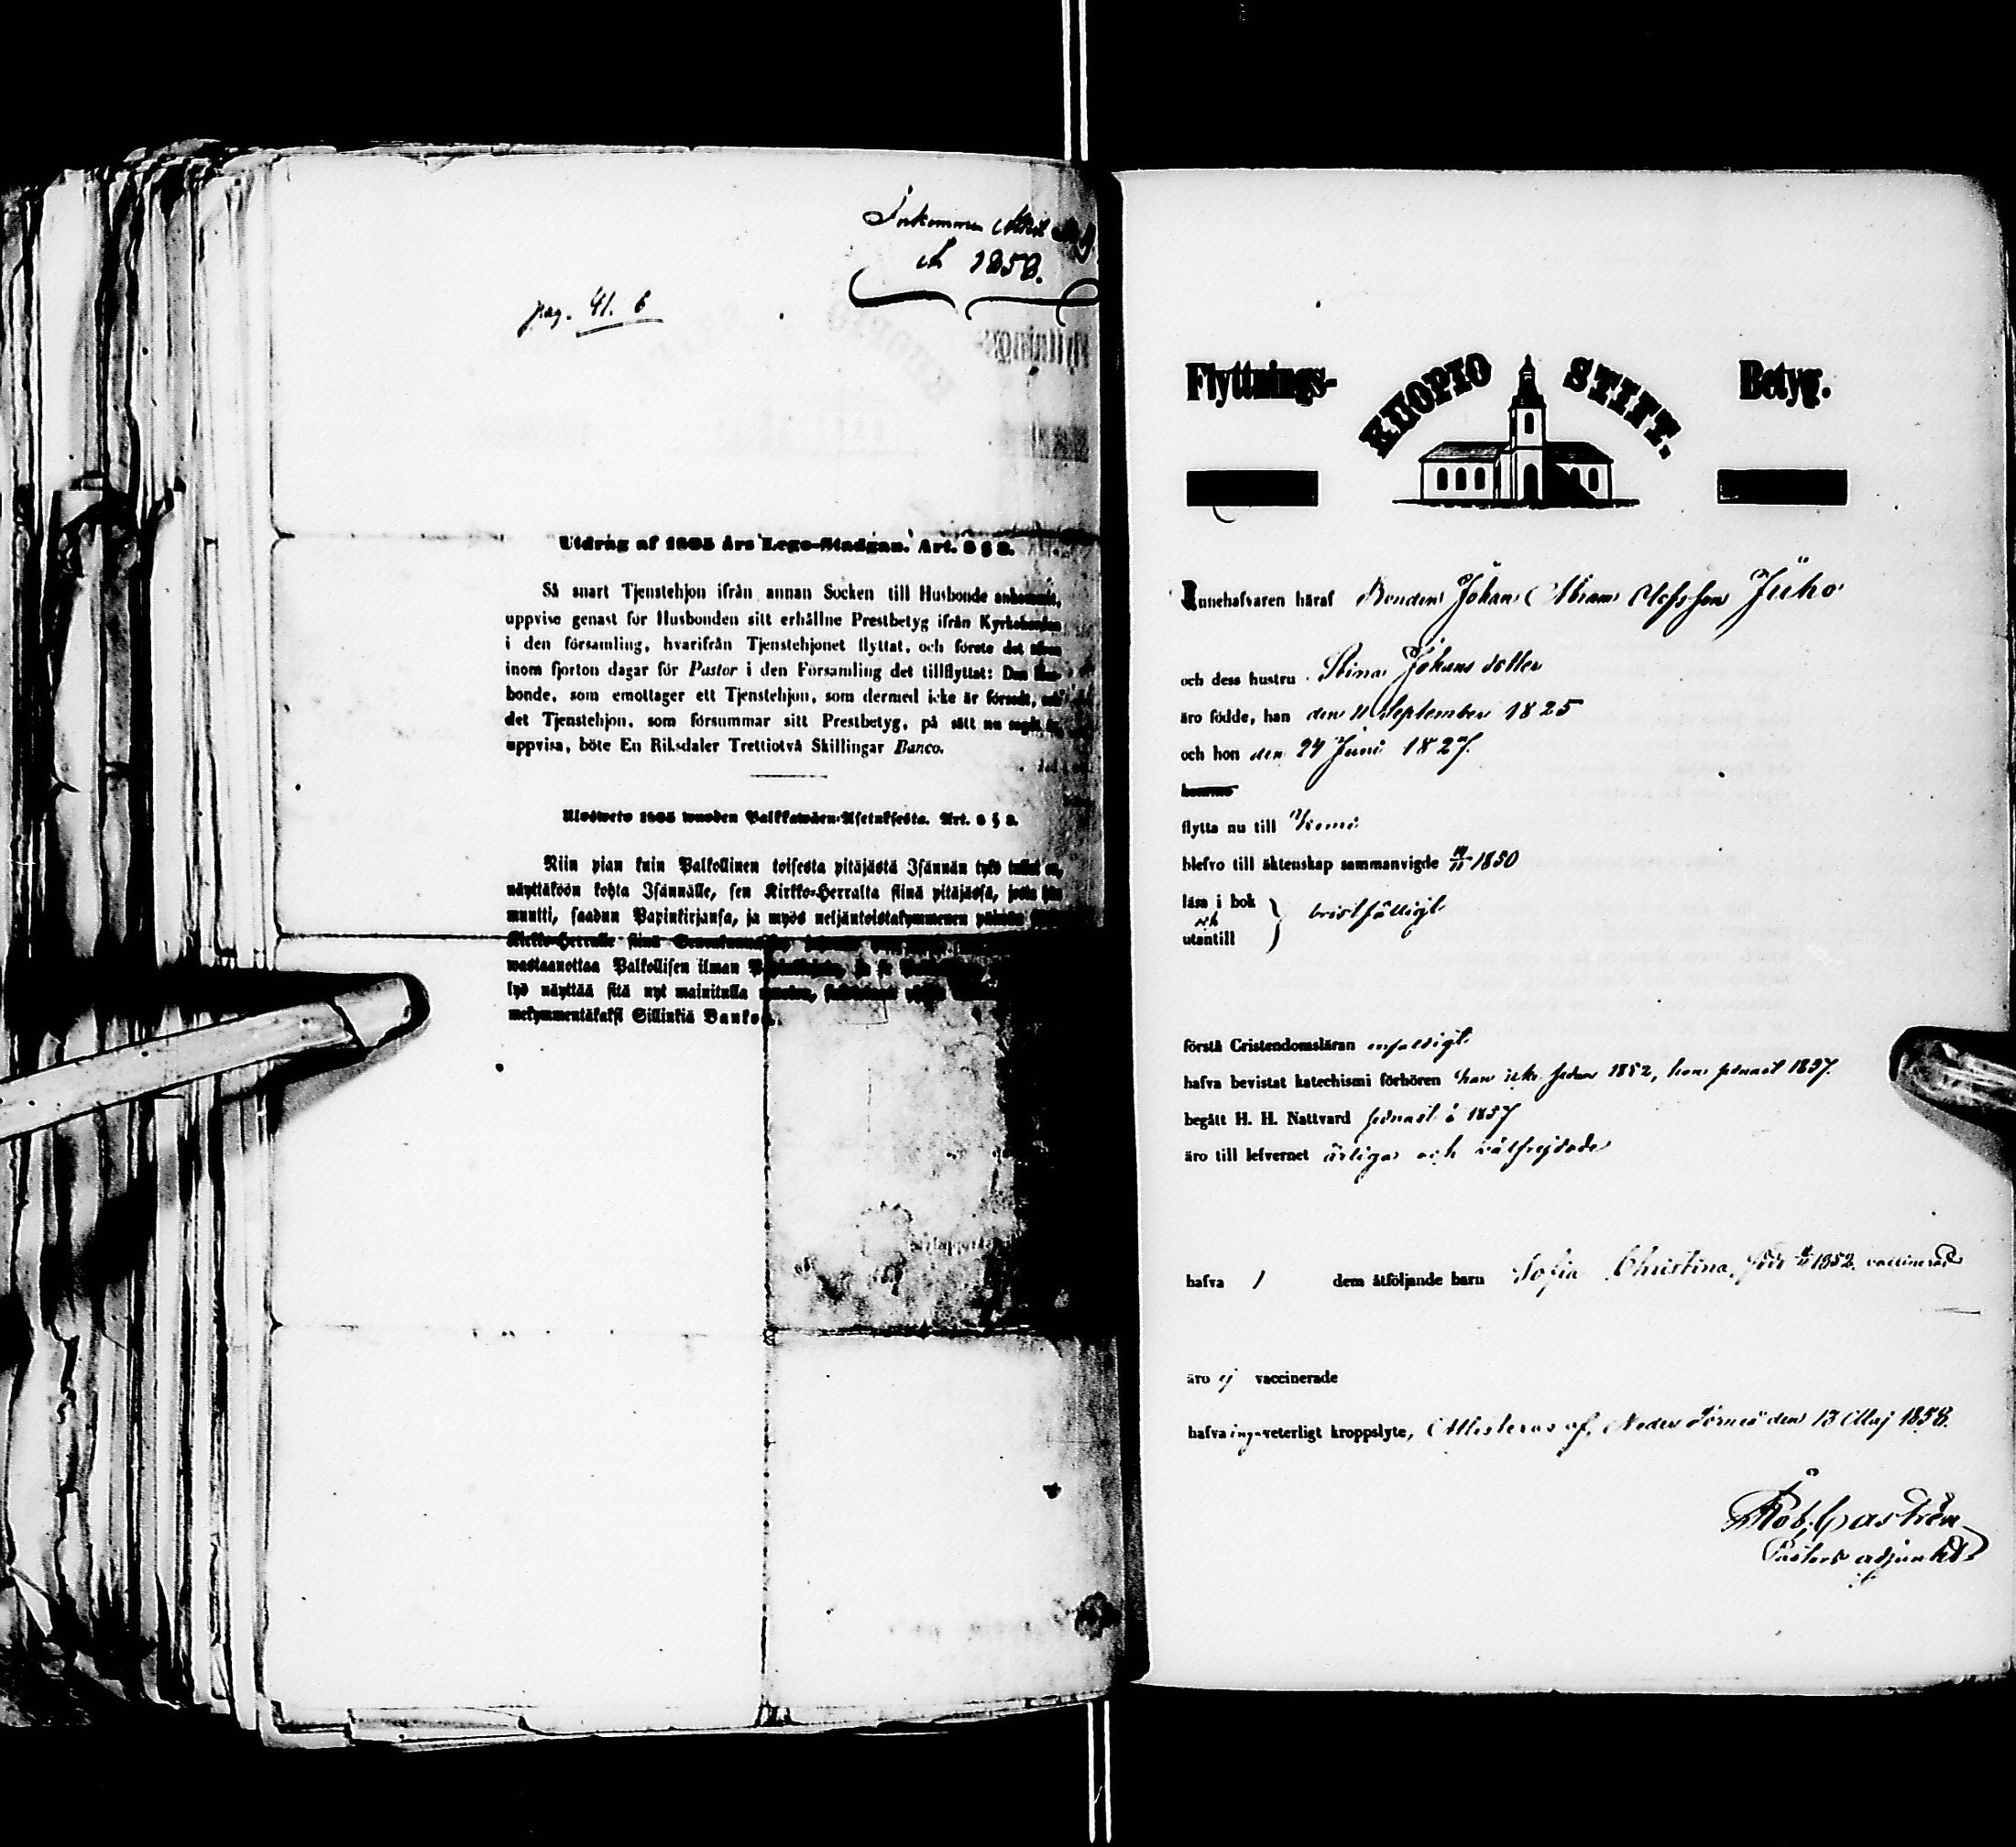 Inkommen
1858.
pag. 41. 6
Utdrag af 1805 års Lego-Stadgan. Art. 8 § 8.
Så snart Tjenstehjon ifrån annan Socken till Husbonde ankommit,
uppvise genast för Husbonden sitt erhållne Prestbetyg ifrån Kyrkoherden
i den församling, hvarifrån Tjenstehjonet flyttat, och förete det äfven
inom fjorton dagar för Pastor i den Församling det tillflyttat: Den Hus-
bonde, som emottager ett Tjenstehjon, som dermed icke är försedt, och
det Tjenstehjon, som försummar sitt Prestbetyg, på sätt nu sagdt är,
uppvisa, böte En Riksdaler Trettiotvå Skillingar Banco.
Ulosweto 1805 wuoden Palkkawäen-Asetuksesta. Art. 8 § 8.
Niin pian kuin Palkollinen toisesta pitäjästä Isännän tykö tullut on,
näyttäköön kohta Isännälle, sen Kirkko-Herralta siinä pitäjässä, josta hän
muutti, saadun Papinkirjansa, ja myös neljäntoistakymmenen päiwän
Kirkko-Herralle siinä
wastaanottaa Palkollisen ilman
lyö näyttää sitä nyt mainitulla
mekymmentäkaksi Sillinkiä Bankos.
Flyttnings- KUOPIO STIFT. Betyg.
Innehafvaren häraf Bonden Johan Abram Olofsson Juho
och dess hustru Stina Johans dotter
äro födde, han den 11 September 1825
och hon den 24 Juni 1827.
flytta nu till Kemi
blefvo till äktenskap sammanvigde 1850
läsa i bok
och
utantill } bristfälligt
förstå Cristendomsläran enfaldigt
hafva bevistat katechismi förhören han icke sedan 1852, hon senast 1857.
begått H. H. Nattvard senast i 1857
äro till lefvernet ärliga och välfrejdade
hafva 1 dem åtföljande barn Sofia Christina, född 1852 vaccinerad
äro ej vaccinerade
hafva inga veterligt kroppslyte, Attesteras af. Neder Torneå den 13 Maj 1858.
Rob. Castrén
Pastors adjunkt